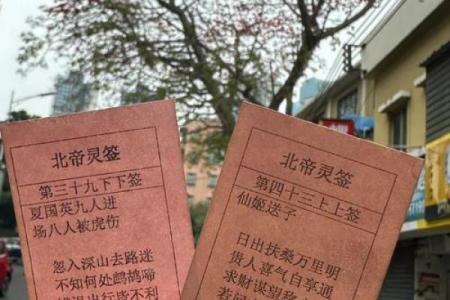 北帝灵签
第三十九下下签
夏国英九人进
场八人被虎伤
忽入深山去路迷
不知何处鹧鸪啼
出行皆不利
北帝灵签
第四十三上上签
仙姬送子
日出扶桑万里明
贵人喜气自享通
求财谋望